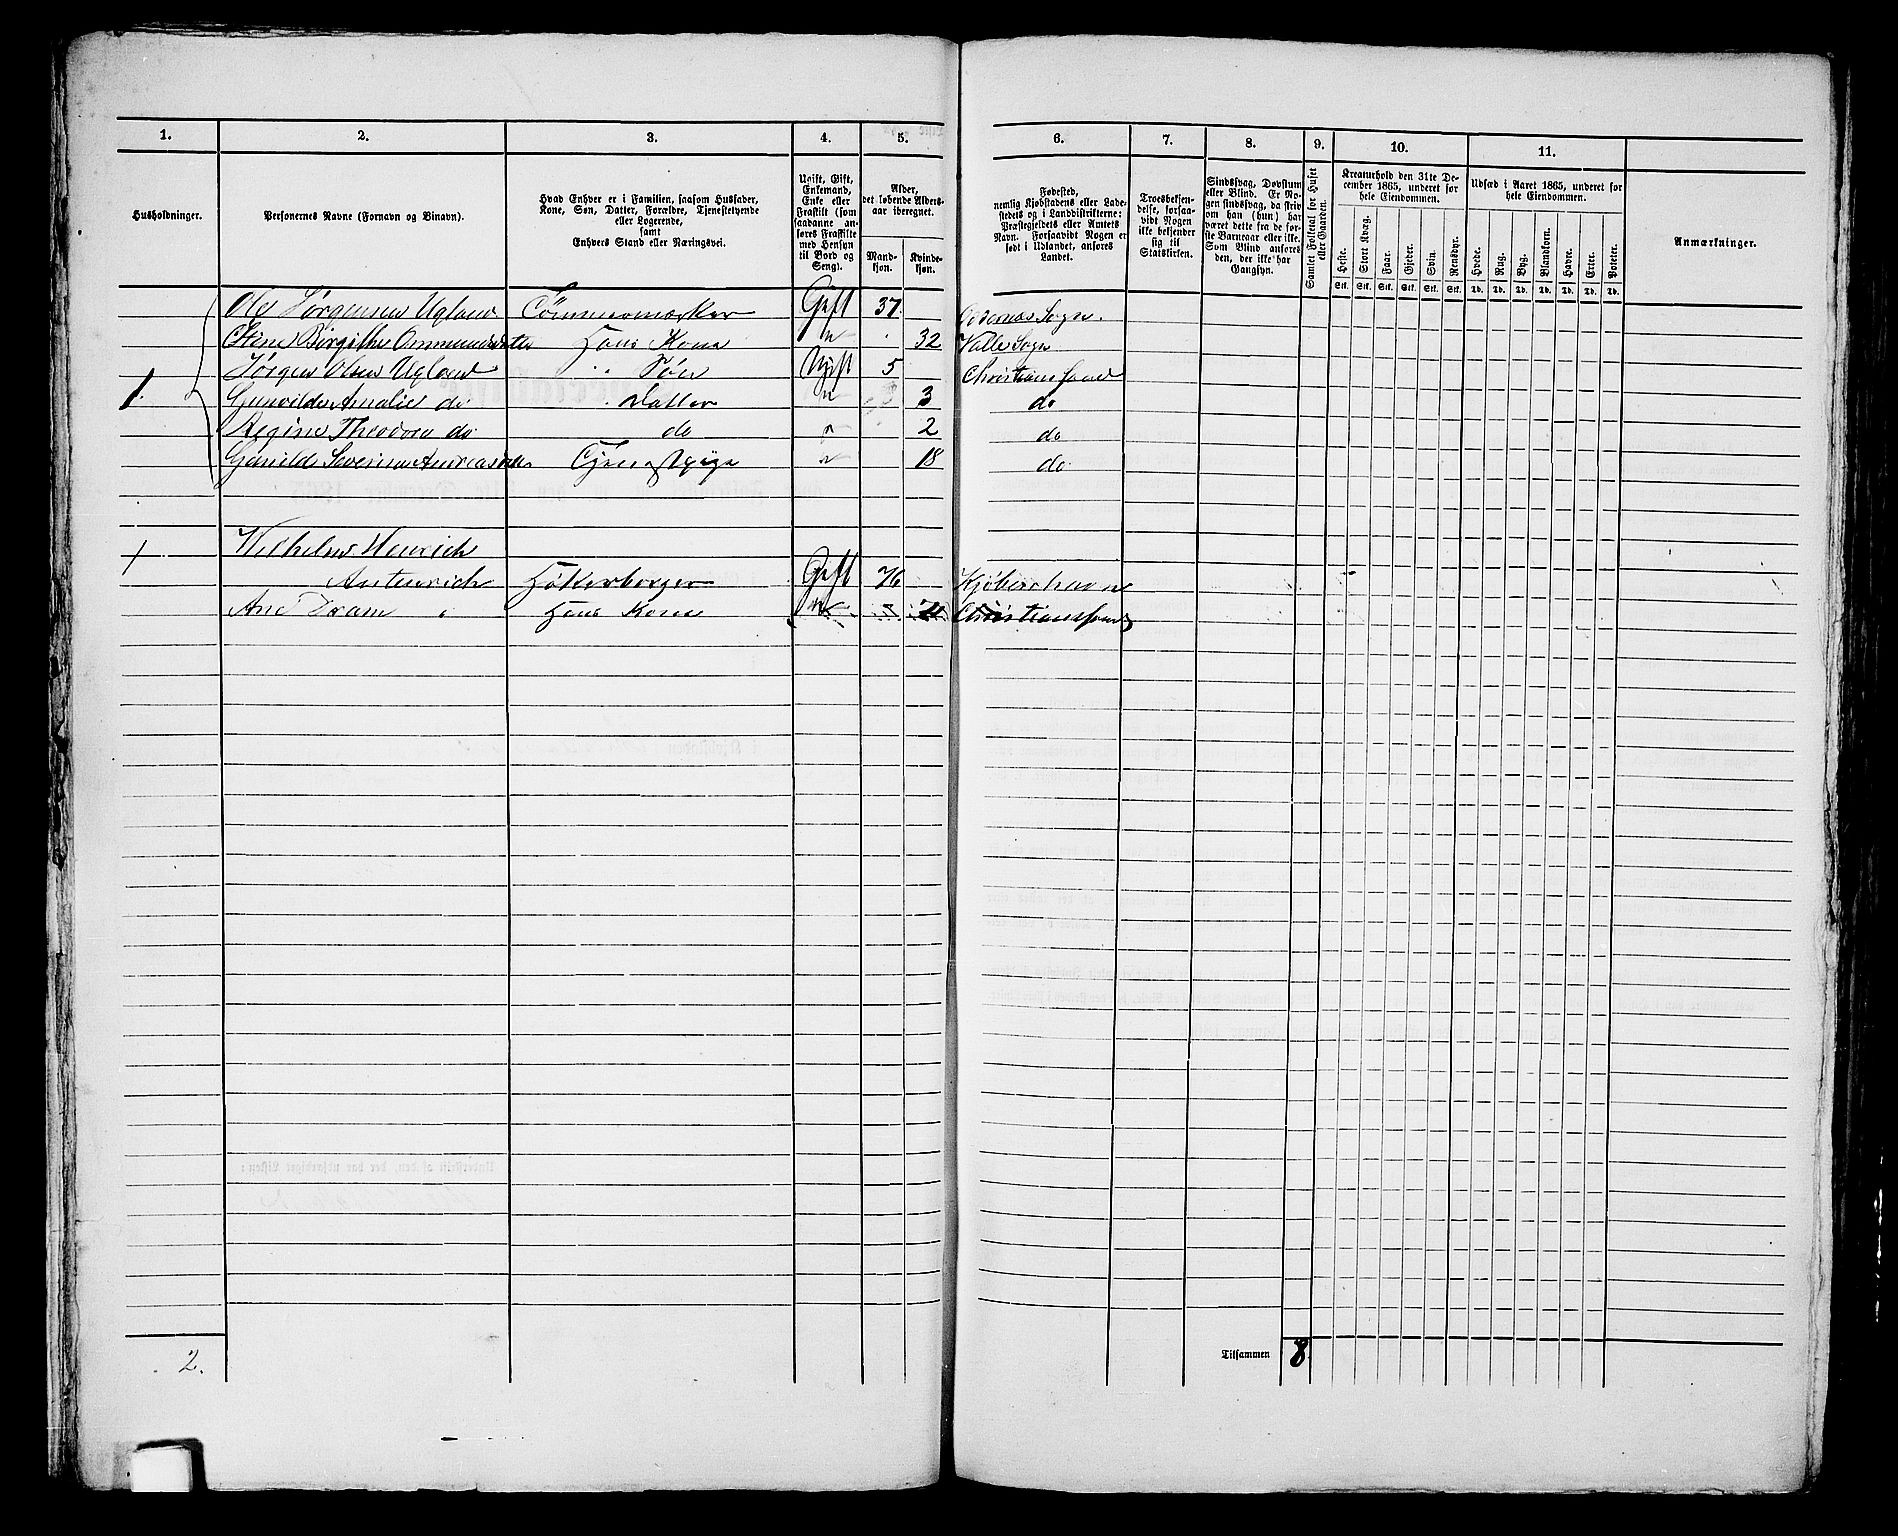 1. 2. 3. 4. 5. 6. 7. 8. 9. 10. 11.
Husholdninger.
Personernes Navne (Fornavn og Binavn).
Hvad Enhver er i Familien, saasom Husfader,
Kone, Søn, Datter, Forældre, Tjenestetyende
eller Logerende,
samt
Enhvers Stand eller Næringsvei.
Ugift, Gift,
Enkemand,
Enke eller
Fraskilt (som
saadanne an-
føres Fraskilte
med Hensyn
til Bord og
Seng).
Alder,
det løbende Alders-
aar iberegnet.
Mand-
kjøn.
Kvinde-
kjøn.
Fødested,
nemlig Kjøbstadens eller Lade-
stedets og i Landdistrikterne:
Præstegjeldets eller Amtets
Navn. Forsaavidt Nogen er
født i Udlandet, anføres
Landet.
Troesbekjen-
delse, forsaa-
vidt Nogen
ikke bekjender
sig til
Statskirken.
Sindssvag, Døvstum
eller Blind. (Er No-
gen sindssvag, da skriv
om han (hun) har
været dette fra de før-
ste Barnaar eller ikke.
Som Blind anføres
den, der ikke har
Gangsyn.
Samlet Folketal for Huset
eller Gaarden.
Kreaturhold den 31te De-
cember 1865, underet for
hele Eiendommen.
Heste. Stort Kvæg. Faar. Gjeder. Svin. Rensdyr.
Stk. Stk. Stk. Stk. Stk. Stk.
Udsæd i Aaret 1865, underet for
hele Eiendommen.
Hvede. Rug. Byg. Blandkorn. Havre. Erter. Poteter.
Td. Td. Td. Td. Td. Td. Td.
Anmærkninger.
Ole Jørgensen Ugland Tømmermærker Gift 37. Oddernes Sogn.
Stine Birgithe Ommundsdatter Hans Kone " 32 Valle Sogn
Jørgen Olsen Ugland " Søn Ugift 5 Christianssand
1. Gunvilde Amalie do " Datter " 3 do
Regine Theodora do do " 2 do
Gunilde Severine Andreasdatter Tjenestpige " 18 do
1 Wilhelm Henrich
Antenrich Høkerborger Gift 76 Kjøbenhavn
Ane Dram " Hans Kone " 71 Christianssand
2.
Tilsammen 8.